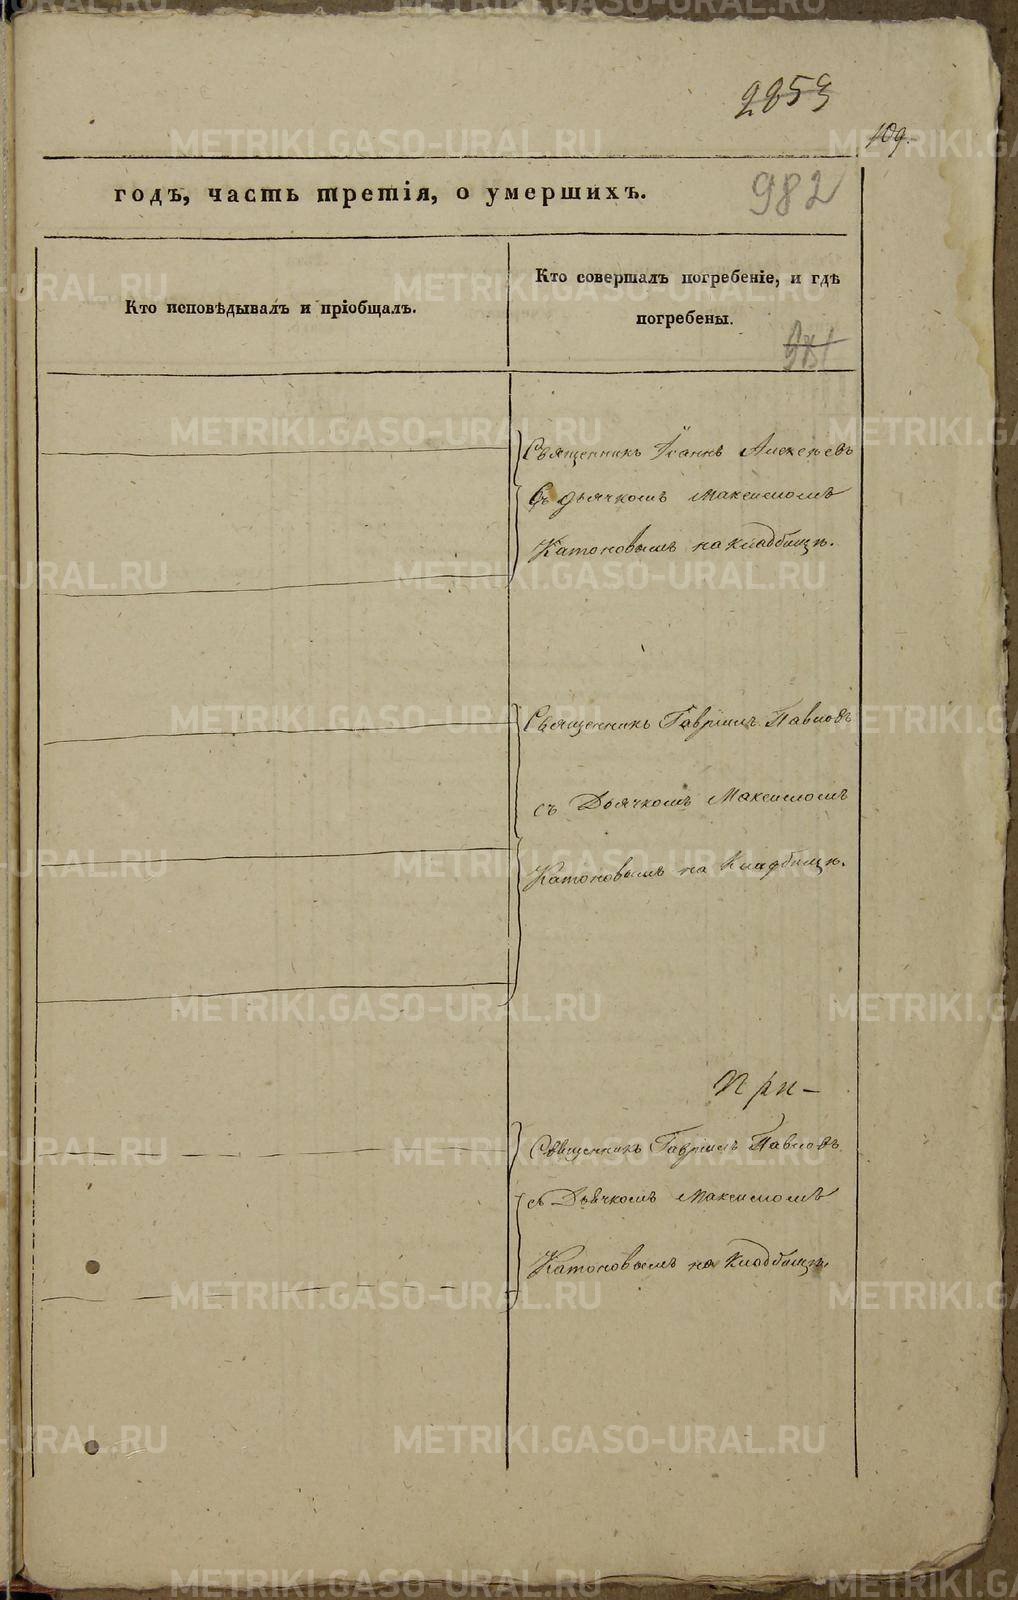 2853
109.
годъ, часть третія, о умершихъ.
982
Кто исповѣдывалъ и пріобщалъ.
Кто совершалъ погребеніе, и гдѣ
погребены.
Священникъ Іоаннъ Алексѣевъ
Съ дьячкомъ Максимомъ
Катоновымъ на кладбищѣ.
Священникъ Гавріилъ Павловъ
съ Дьячкомъ Максимомъ
Катоновымъ на Кладбищѣ.
При-
Священникъ Гавріилъ Павловъ
съ Дьячкомъ Максимомъ
Катоновымъ на кладбищѣ
METRIKI.GASO-URAL.RU